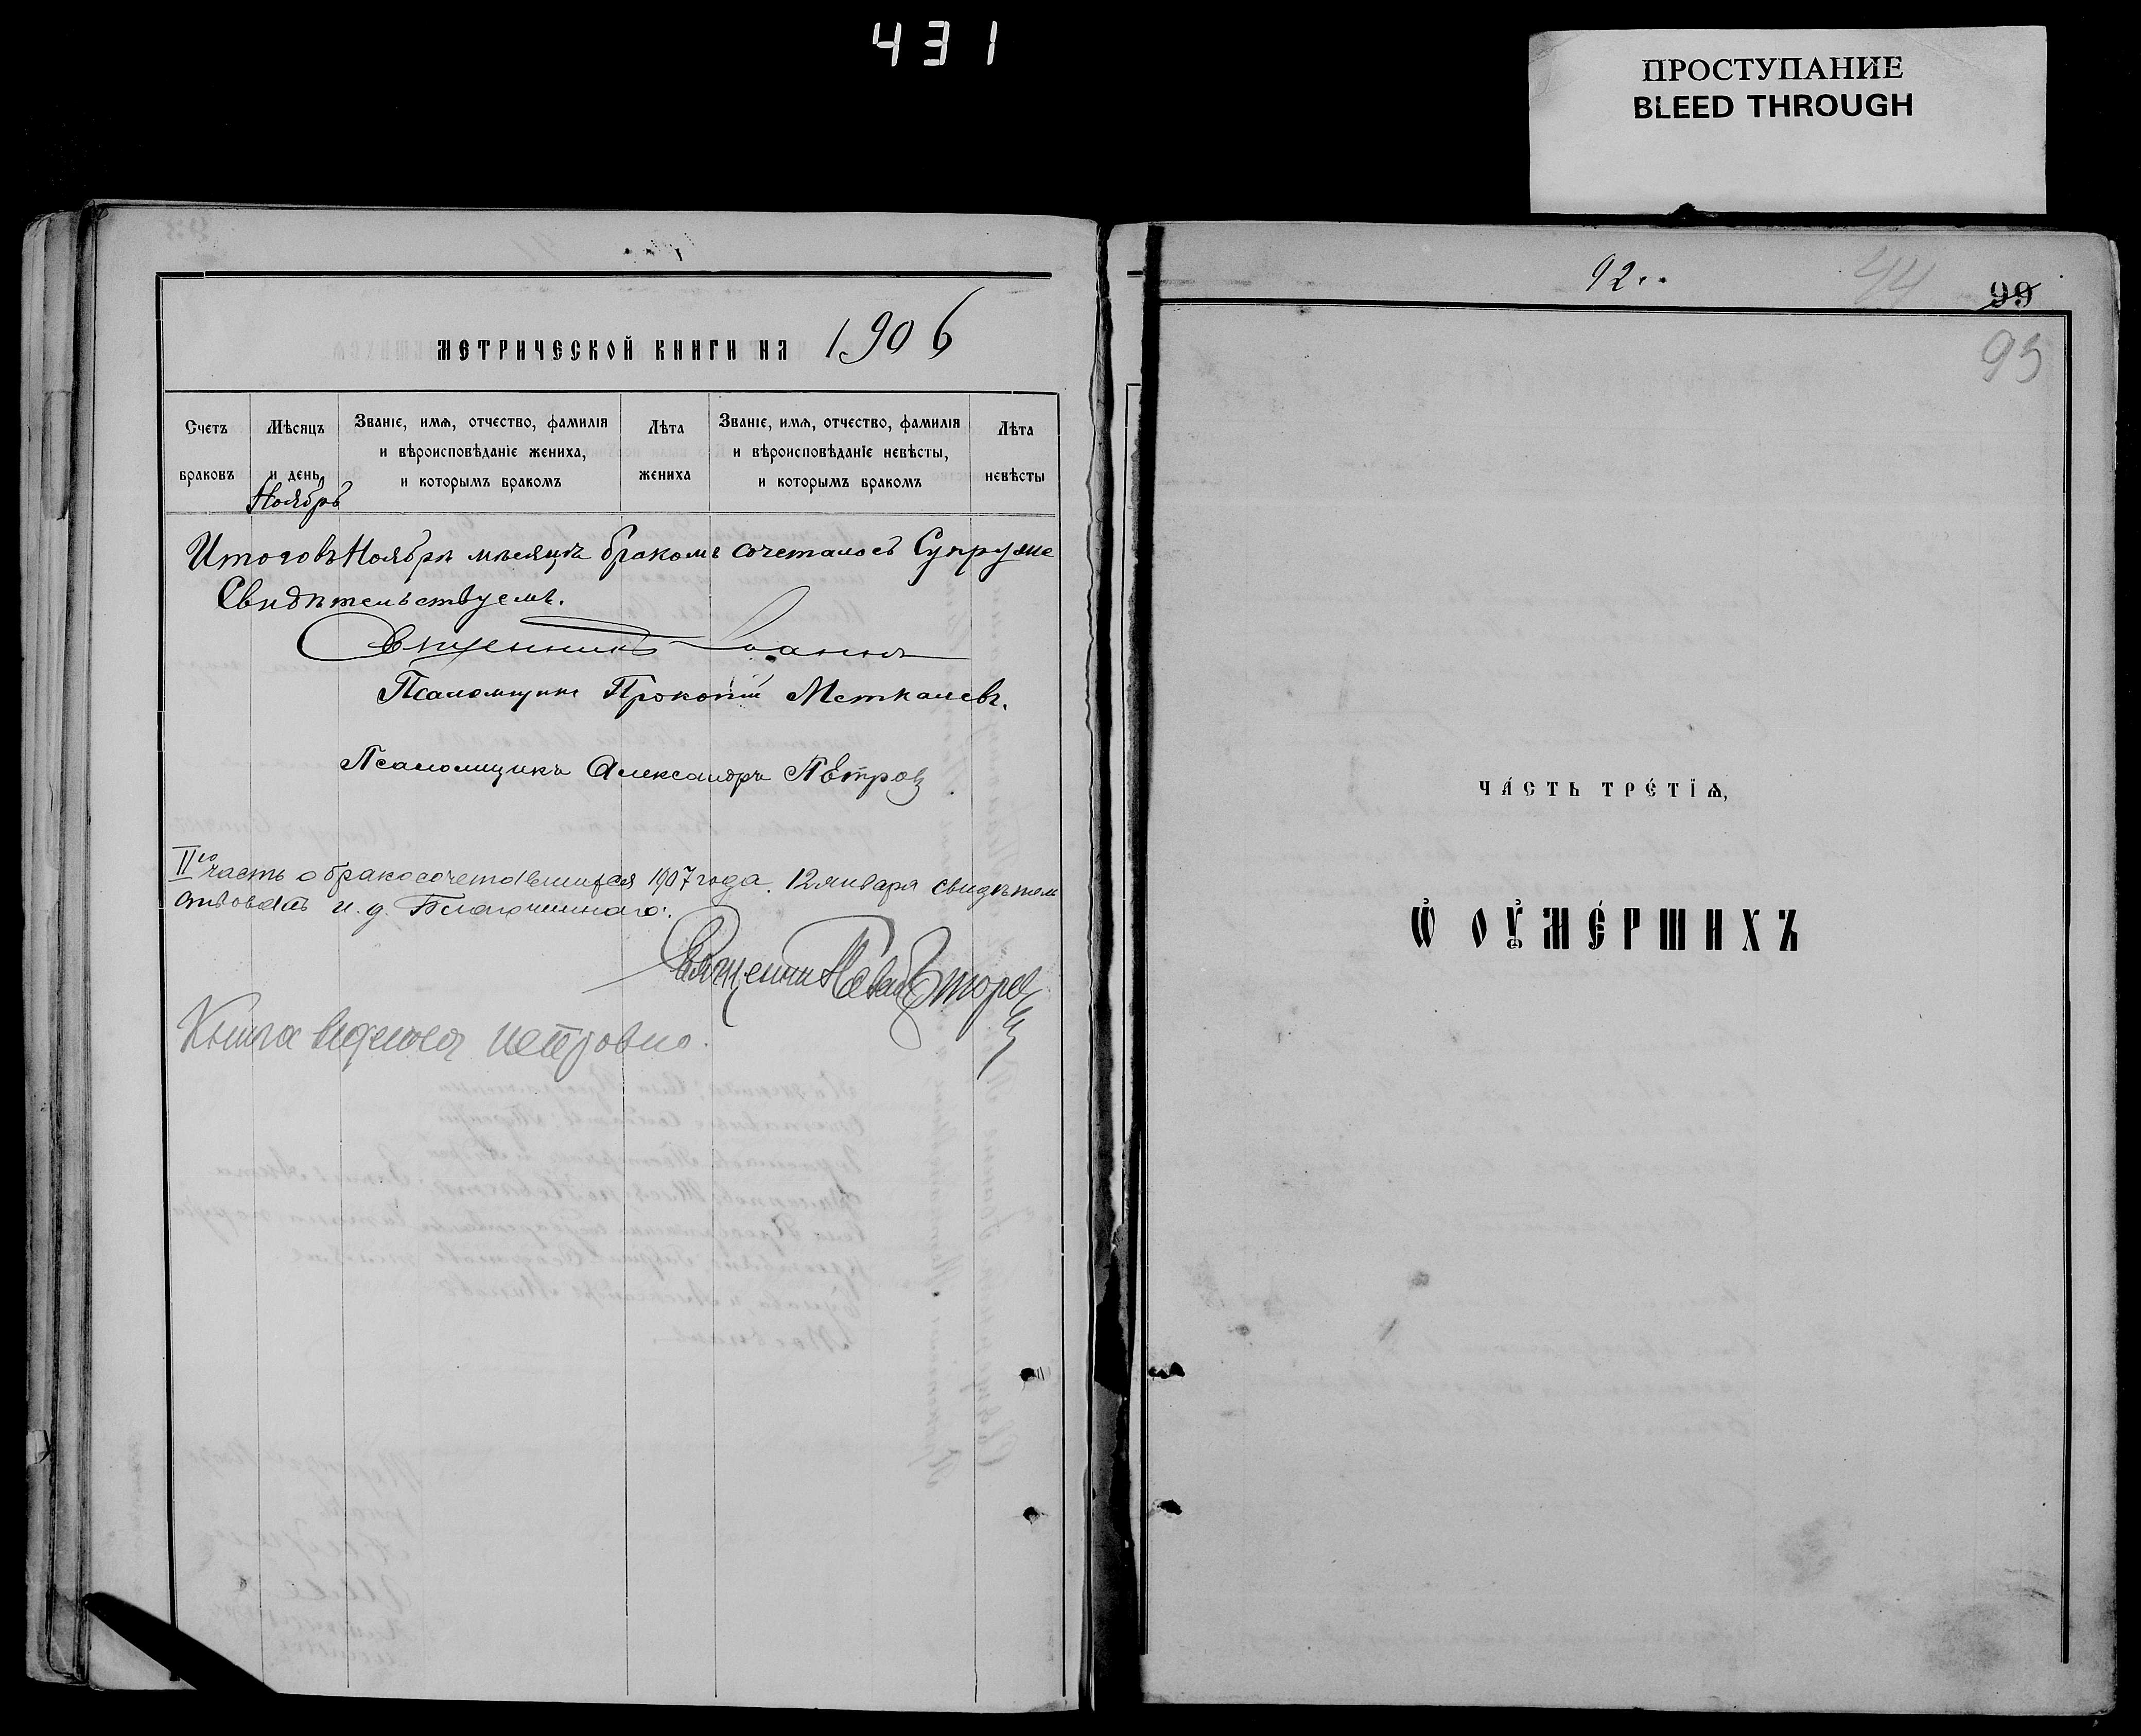 431
ПРОСТУПАНИЕ
BLEED THROUGH
МЕТРИЧЕСКОЙ КНИГИ НА 1906
Счетъ браковъ
Мѣсяцъ и день
Ноябрь
Званіе, имѧ, отчество, фамилія
и вѣроисповѣданіе жениха,
и которымъ бракомъ
Лѣта жениха
Званіе, имѧ, отчество, фамилія
и вѣроисповѣданіе невѣсты,
и которымъ бракомъ
Лѣта невѣсты
Итого въ Ноябрѣ мѣсяцѣ бракомъ сочеталось
Свидѣтельствуемъ.
Священникъ Іоаннъ
Псаломщикъ Прокопій Меткалевъ.
Псаломщикъ Александръ Пѣтровъ
II часть о бракосочетавшихся 1907 года. 12 января свидѣтель
ствовалъ и. д. Благочиннаго:
Священникъ
Книга ведена исправно.
92
44
99
93
ЧА́СТЬ ТРЕ́ТЇѦ,
Ѡ҆ ОУ҆МЕ́РШИХЪ